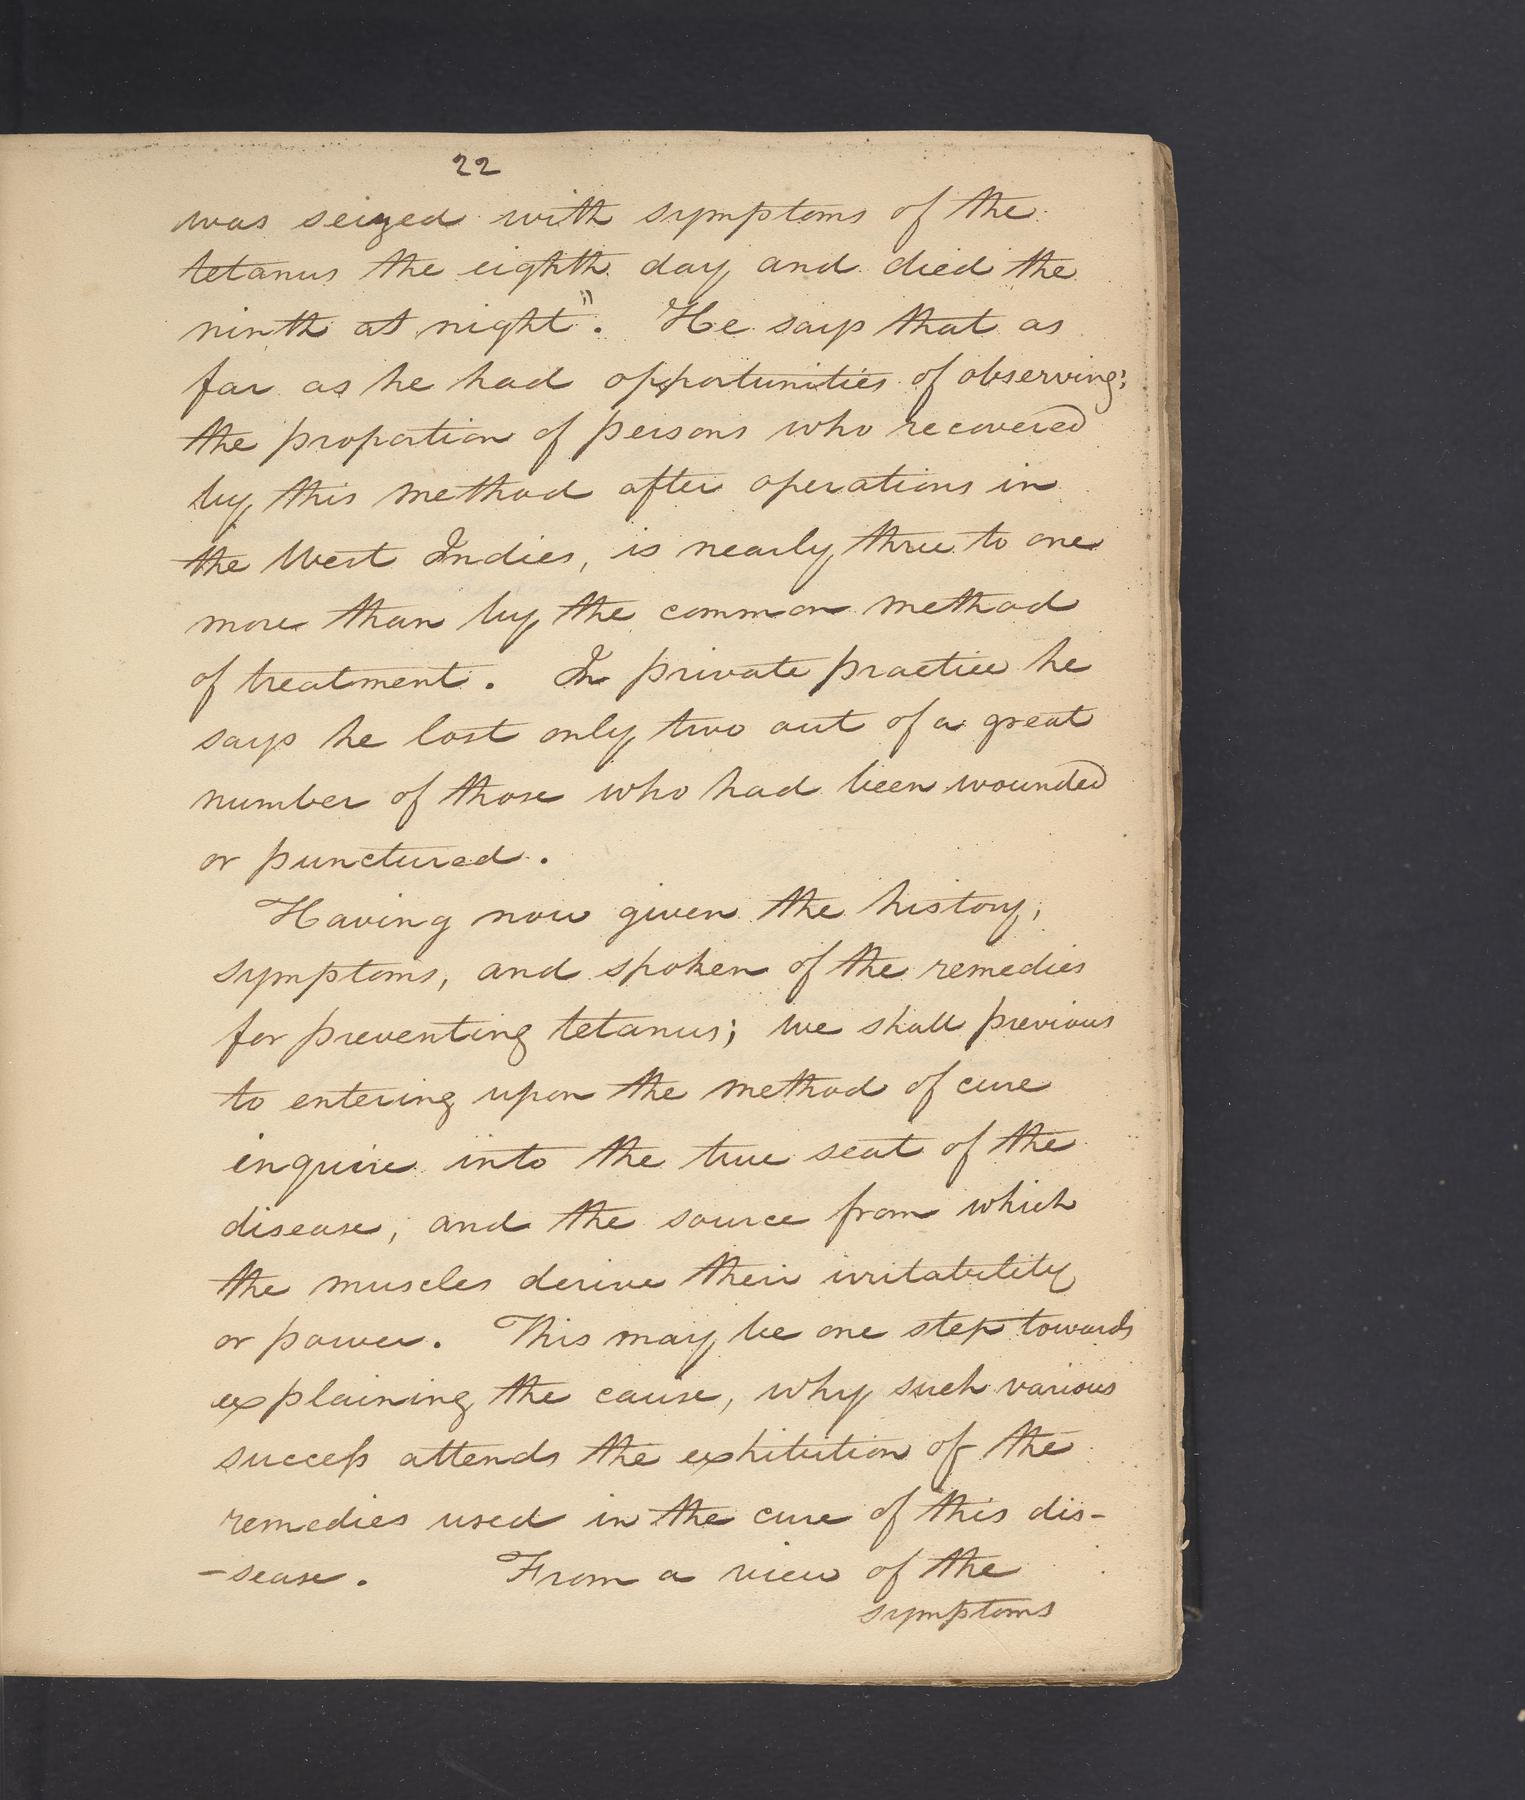 22
was seized with symptoms of the
tetanus the eighth day and died the
ninth at night". He says that as
far as he had opportunities of observing;
the proportion of persons who recovered
by this method after operations in
the West Indies, is nearly three to one
more than by the common method
of treatment. In private practice he
says he lost only two out of a great
number of those who had been wounded
or punctured.
Having now given the history,
symptoms, and spoken of the remedies
for preventing tetanus; we shall previous
to entering upon the method of cure
inquire into the true seat of the
disease, and the source from which
the muscles derive their irritability
or power. This may be one step towards
explaining the cause, why such various
success attends the exhibition of the
remedies used in the cure of this dis-
-sease. From a view of the
symptoms